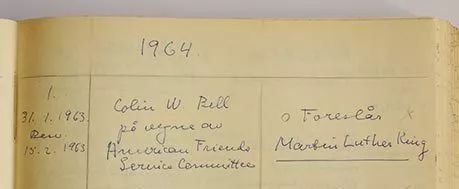 1964.
1.
31.1.1963.
Bew.
15.2.1963
Colin W. Bell
på vegne av
American Friends
Service Committee
o Foreslår x
Martin Luther King